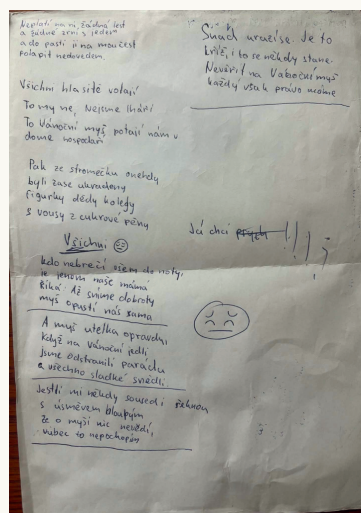 Neplatí na ni, žádná lest
a žádné zrní s jedem
a do pasti ji na mou čest
polapit nedovedem.
Všichni hlasitě volají
To my ne, Nejsme lháři
To Vánoční myš, potají nám v
domě hospodaří
Pak ze stromečku onehdy
byli zase ukradeny
figurky dědy koledy
s vousy z cukrové pěny
Všichni
kdo nebrečí všem do noty,
je jenom naše máma
Říká: Až sníme dobroty
myš opustí nás sama
A myš utekla opravdu
když na Vánoční jedli
jsme odstranili parádu
a všechno sladké snědli
Jestli mi někdy sousedi řeknou
s úsměvem bloupým
že o myši nic nevědí,
vůbec to nepochopím
Snad uraził se. Je to
kříž, i to se někdy stane.
Nevěřit na Vánoční myš
každý však právo nemáme
Já chci !!!